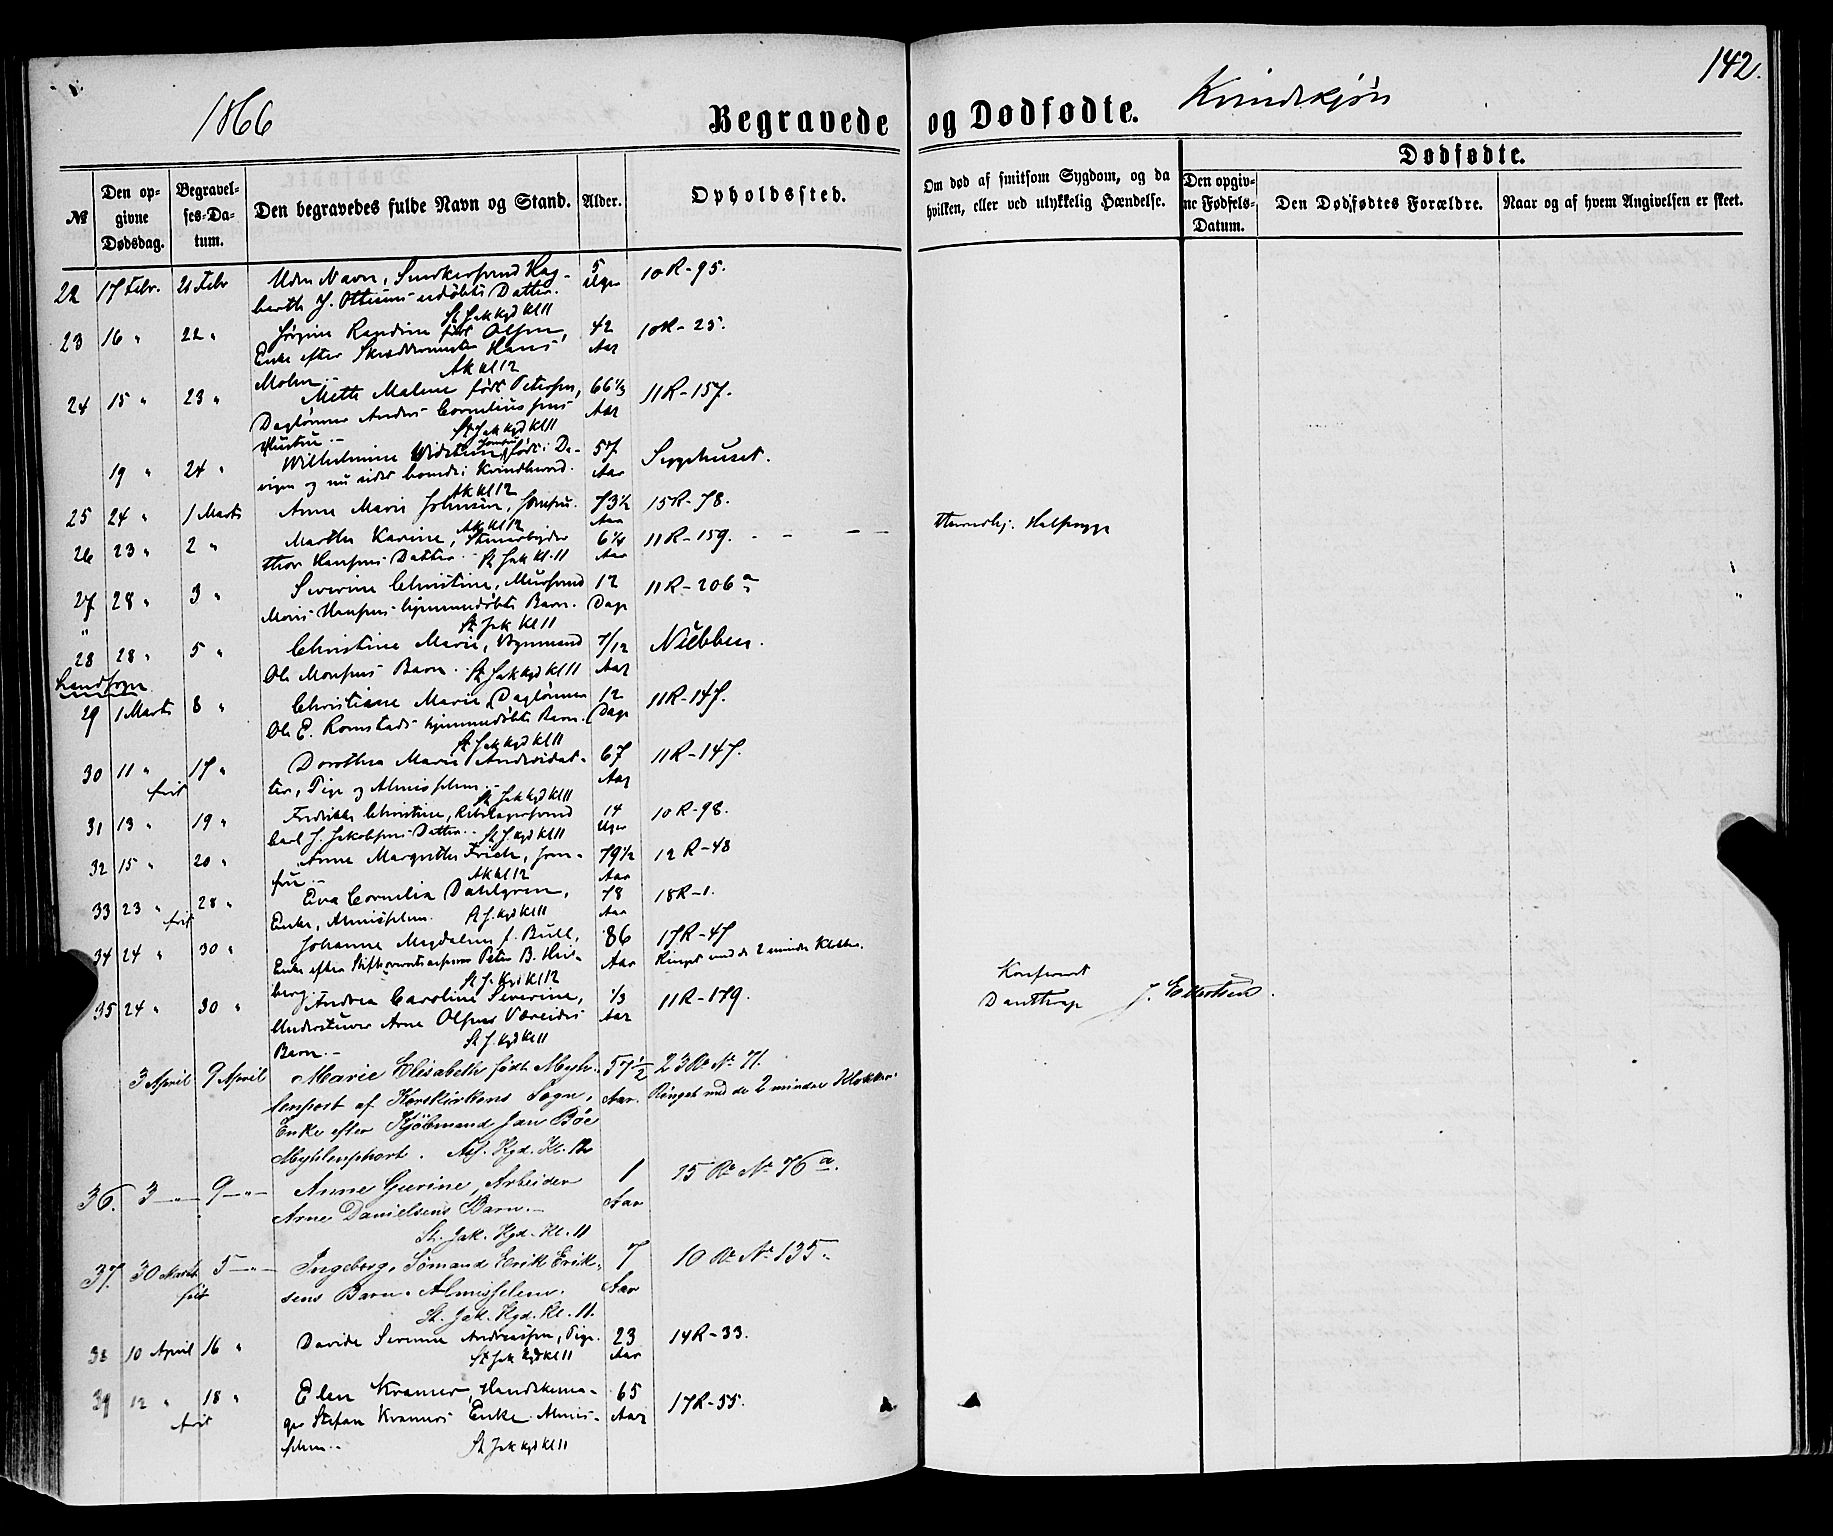 142.
1866
Begravede og Dødfødte.
Kvindekjøn
№
Den opgivne Dødsdag.
Begravelses-Datum.
Den begravedes fulde Navn og Stand.
Alder.
Opholdssted.
Om død af smitsom Sygdom, og da hvilken, eller ved ulykkelig Hændelse.
Dødfødte.
Den opgivne Fødsels-Datum.
Den Dødfødtes Forældre.
Naar og af hvem Angivelsen er skeet.
22 17 Febr. 21 Febr Uden Navn, Snedkersvend Hag- 5 Uger 10R-95.
barth J. Ottesens udøbte Datter.
St Jak Kgd Kl 11
23 16 " 22 " Jørgine Randine født Olsen, 42 Aar 10R-25.
Enke efter Skræddermester Hans
Mohn.- Ak kl 12
24 15 " 23 " Mette Malene født Petersen, 66 1/3 Aar 11R-157.
Daglønner Anders Corneliussens
Hustru.- St Jak Kgd Kl 11
19 " 24 " Wilhelmine født i De- 57 Aar Sygehuset.
vigen og nu sidst boende i Kvindherred.
Ak kl 12
25 24 " 1 Marts Anne Marie Johnsen, Jomfru. 73 1/2 Aar 15R-78.
Ak kl 12
26 23 " 2 " Marthe Karine, 6 1/4 Aar 11R-159. - - - - Halssyge
Thor Hansens Datter. St Jak Kl. 11
27 28 " 3 " Severine Christine, Mursvend 12 Dage 11R-206 a
Mons Hansens hjemmedøbte Barn.
St Jak Kl 11
28 28 " 5 " Christine Marie, 7/12 Aar Nubben.
Ole Monsens Barn. St Jak Kgd Kl 11
Landsogn
29 1 Marts 8 " Christiane Marie, Daglønner 12 Dage 11R-147.
Ole E. Romstads hjemmedøbte Barn.
St Jak Kgd Kl 11
30 11 " 17 " Dorothea Marie Andersdat- 67 Aar 11R-147.
frit ter, Pige og Almisselem.-
St Jak Kgd Kl 11
31 13 " 19 " Fredrikke Christine, 14 Uger 10R-98.
Carl J. Jakobsens Datter. St J. Kgd Kl 11
32 15 " 20 " Anne Margrethe Frich, Jom- 79 1/2 Aar 12R-48
fru.- Ak kl 12
33 23 " 28 " Eva Cornelia Dahlgren, 78 Aar 18R-1.
frit Enke, Almisselem. St J. Kgd Kl 11
34 24 " 30 " Johanne Magdalene f. Bull, 86 Aar 17R-47
Enke efter Peter B. Heil- Ringet med de 2 mindre Klokker.
berg. St J. Kgd Kl 12
Konfereret
J. Ellertsen.
35 24 " 30 " Andrea Caroline Severine, 1/3 Aar 11R-179.
Arne Olsens Væreides
Barn.- St J. Kgd Kl 11
3 April 9 April Marie Elisabeth født Myh- 57 1/2 Aar. 23 R. N. 71.
lenport af Korskirkens Sogn, Ringet med de 2 mindre Klokker.
Enke efter Kjøbmand Jan Bøe
Myhlenphort. As. Kgd. Kl. 12
36. 3 -"- 9 -"- Anne Gurine, Arbeider 1 Aar 15 R. N. 76 a.
Arne Danielsens Barn.-
St. Jak. Kgd. Kl. 11
37. 30 Marts 5 -"- Ingeborg, Sømand Erik Erik- 7 Aar 10 R. N. 135.
frit sens Barn. Almisselem.
St. Jak. Kgd. Kl. 11.
38 10 April 16 " Davide Severine Andreassen, Pige. 23 Aar 14R-33.
St Jak Kgd Kl 11
39 12 " 18 " Elen Kramer, Handskema- 65 Aar 17R-55.
frit ger Stefan Kramers Enke. Almis-
selem.- St Jak Kgd Kl 11